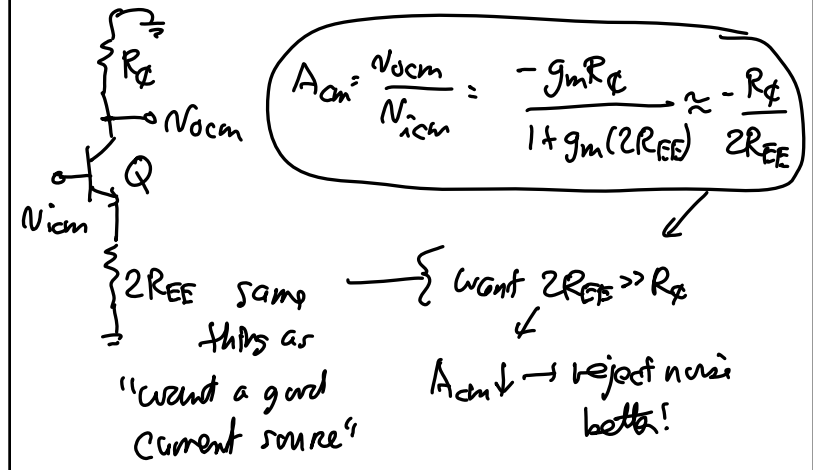 R₵
vocm
Q
vicm
2REE
Acm = vocm / vicm = -gmR₵ / 1+gm(2REE) ≈ -R₵ / 2REE
same
thing as
"want a good
current source"
want 2REE >> R₵
Acm↓ → reject noise
better!